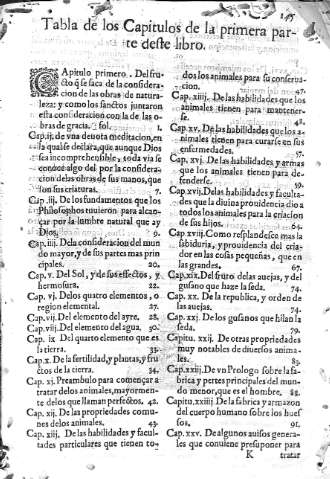 Tabla de los Capitulos de la primera par-
te deste libro.
CApitulo primero. Del fru-
to q̃ se saca de la consideracion
de las obras de natura-
leza: y como los sanctos juntaron
esta consideracion con la de las o-
bras de gracia. fol. 1.
Cap. ij. de vna deuota meditacion, en
la qual se declara, que aunque Dios
sea incomprehensible, toda via se
conoce algo del por la considera-
cion de las obras de sus manos, que
son sus criaturas. 7.
Cap. iij. De los fundamentos que los
Philosophos tuuieron para alcan-
çar por la lumbre natural que ay
Dios. 9.
Cap. iiij. De la consideracion del mun
do mayor, y de sus partes mas prin
cipales. 20.
Cap. v. Del Sol, y de sus effectos, y
hermosura. 22.
Cap. vj. De los quatro elementos, o
region elemental. 27.
Cap. vij. Del elemento del ayre. 28.
Cap. viij. Del elemento del agua. 30.
Cap. ix Del quarto elemento que es
la tierra. 33.
Cap. x. De la fertilidad, y plantas, y fru
ctos de la tierra. 34.
Cap. xj. Preambulo para començar a
tratar de los animales, mayormen-
te de los que llaman perfectos. 42.
Cap. xij. De las propriedades comu-
nes de los animales. 43.
Cap. xiij. De las habilidades y facul-
tades particulares que tienen to-
dos los animales para su conserua-
cion. 47.
Cap. xiiij. De las habilidades que los
animales tienen para mantener-
se.
Cap. xv. De las habilidades que los a-
nimales tienen para curarse en sus
enfermedades.
Cap. xvj. De las habilidades y armas
que los animales tienen para de-
fenderse.
Cap. xvij. Delas habilidades y faculta-
des que la diuina prouidencia dio a
todos los animales para la criacion
de sus hijos. 64.
Cap. xviij. Como resplandesce mas la
sabiduria, y prouidencia del cria-
dor en las cosas pequeñas, que en
las grandes. 67.
Cap. xix. Del fruto delas auejas, y del
gusano que haze la seda. 74.
Cap. xx. De la republica, y orden de
las auejas. 74.
Cap. xxj. De los gusanos que hilan la
seda.
Capitu. xxij. De otras propriedades
muy notables de diuersos anima-
les. 83.
Cap. xxiij. De vn Prologo sobre la fa-
brica y pertes principales del mun-
do menor, que es el hombre. 88.
Capitu. xxiiij. De la fabrica y armazon
del cuerpo humano sobre los hues
sos. 91.
Cap. xxv. De algunos auisos genera-
les que conuiene presuponer para
K tratar